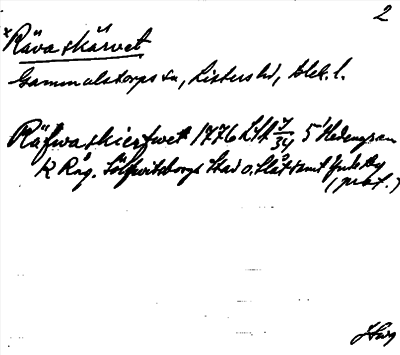 2
*Räva skärvet
Gammalstorps sn, Listers hd, Blek. l.
Räfwaskierfwet 1776 LSA 7/34 5 Hedengran
K Råg. Sölfwitsborgs Stad o. Slåt samt
(prot.)